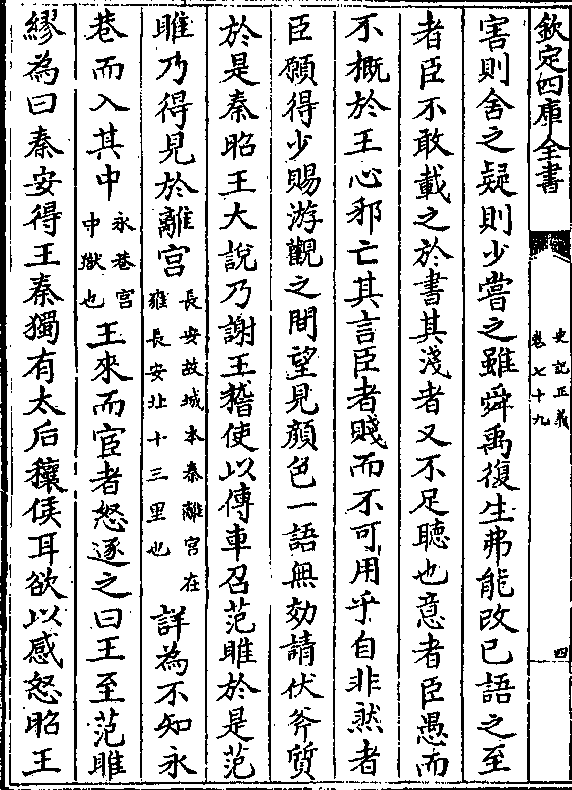 欽定四庫全書
史記正義
卷七十九
四
害則舍之疑則少嘗之雖舜禹復生弗能改已語之至
者臣不敢載之於書其淺者又不足聽也意者臣愚而
不概於王心邪亡其言臣者賤而不可用乎自非然者
臣願得少賜游觀之間望見顔色一語無効請伏斧質
於是秦昭王大說乃謝王稽使以傳車召范雎於是范
雎乃得見於離宮長安故城本秦離宮在雍長安北十三里也詳為不知永
巷而入其中永巷宮中獄也王來而宦者怒逐之曰王至范雎
繆為曰秦安得王秦獨有太后穰侯耳欲以感怒昭王